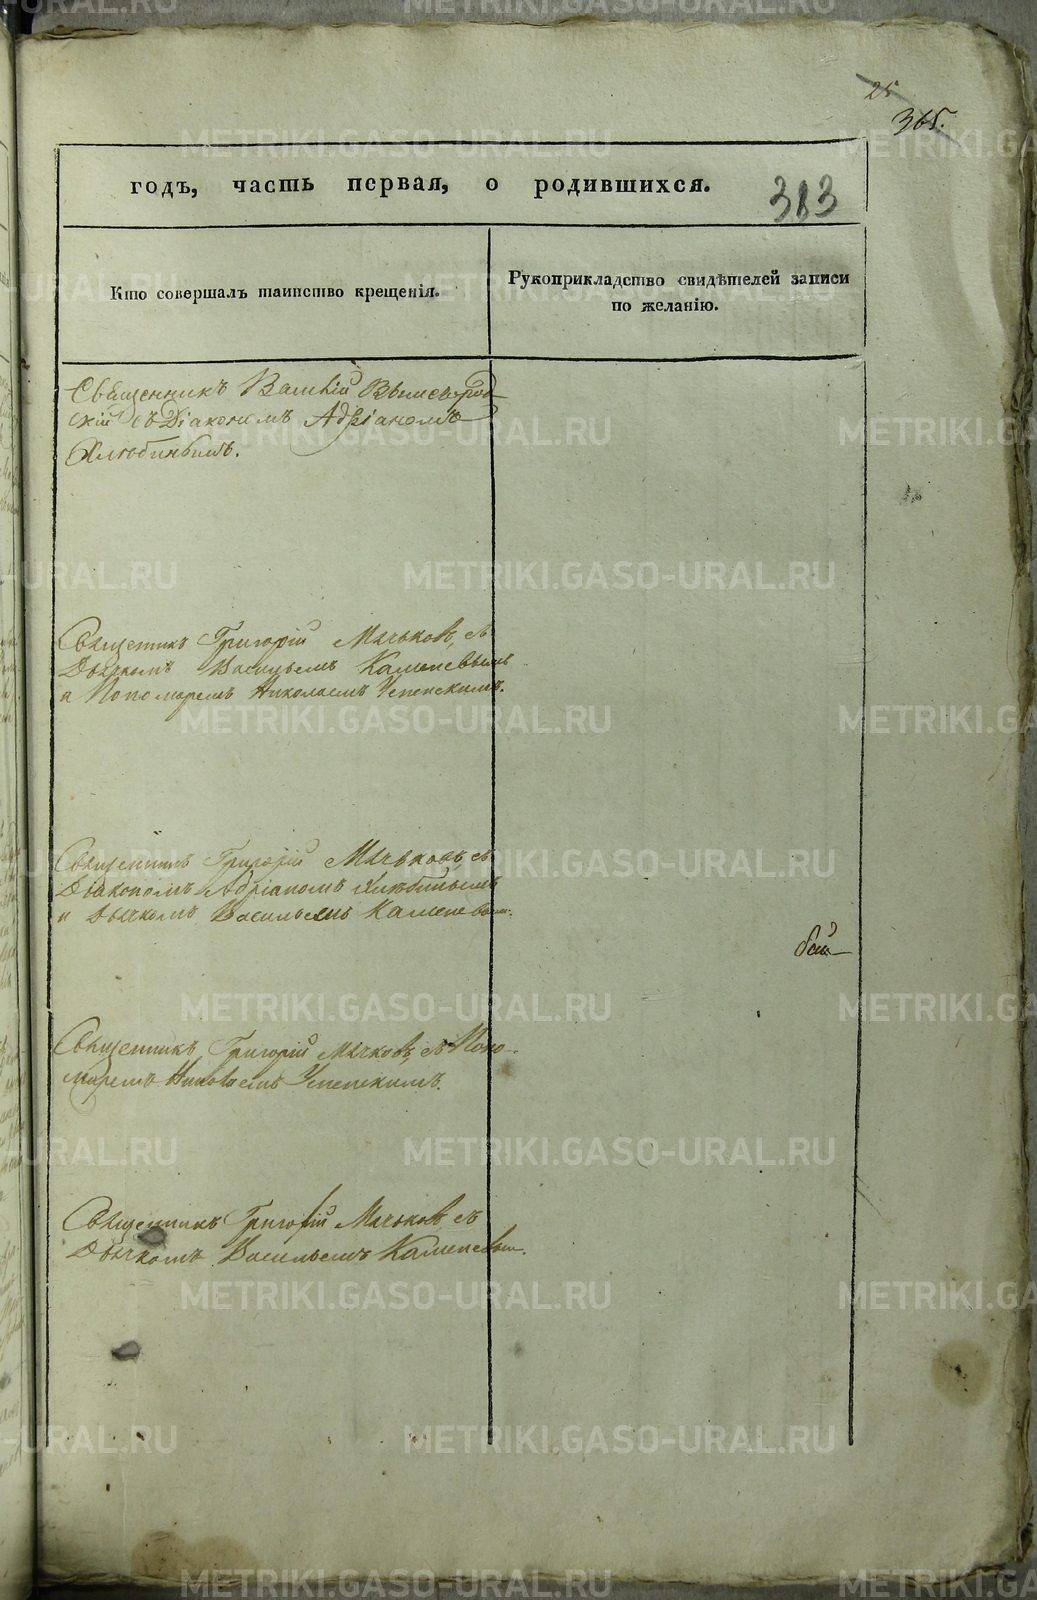 25
365.
годъ, часть первая, о родившихся.
383
Кто совершалъ таинство крещенія.
Рукоприкладство свидѣтелей записи
по желанію.
Священникъ Василій Вышегород-
скій съ Діакономъ Адріаномъ
Хлюбинымъ.
Священникъ Григорій Мячьковъ, съ
Дьячкомъ Васильемъ Каменевымъ
и Пономаремъ Николаемъ Успенскимъ.
Священникъ Григорій Мячьковъ, съ
Діакономъ Адріаномъ Хлюбинымъ
и Дьячкомъ Васильемъ Каменевым:
Священникъ Григорій Мячковъ, съ Поно-
маремъ Николаемъ Успенскимъ.
Священникъ Григорій Мячьковъ съ
Дьячкомъ Васильемъ Каменевым.
METRIKI.GASO-URAL.RU